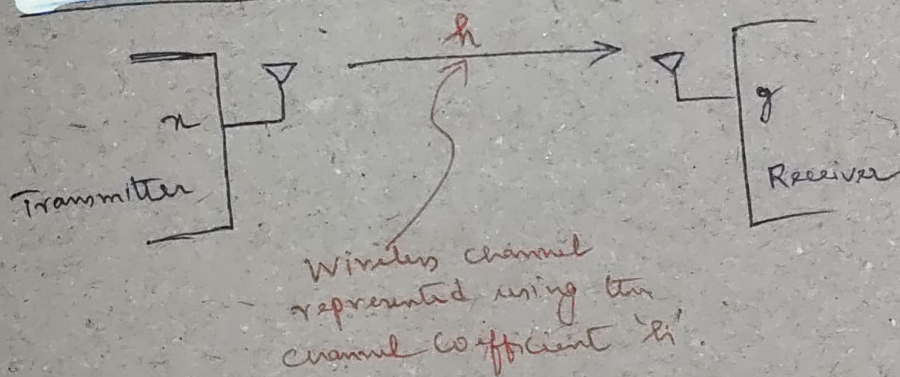 h
x
y
Transmitter
Receiver
Wireless channel
represented using the
channel coefficient 'h'.